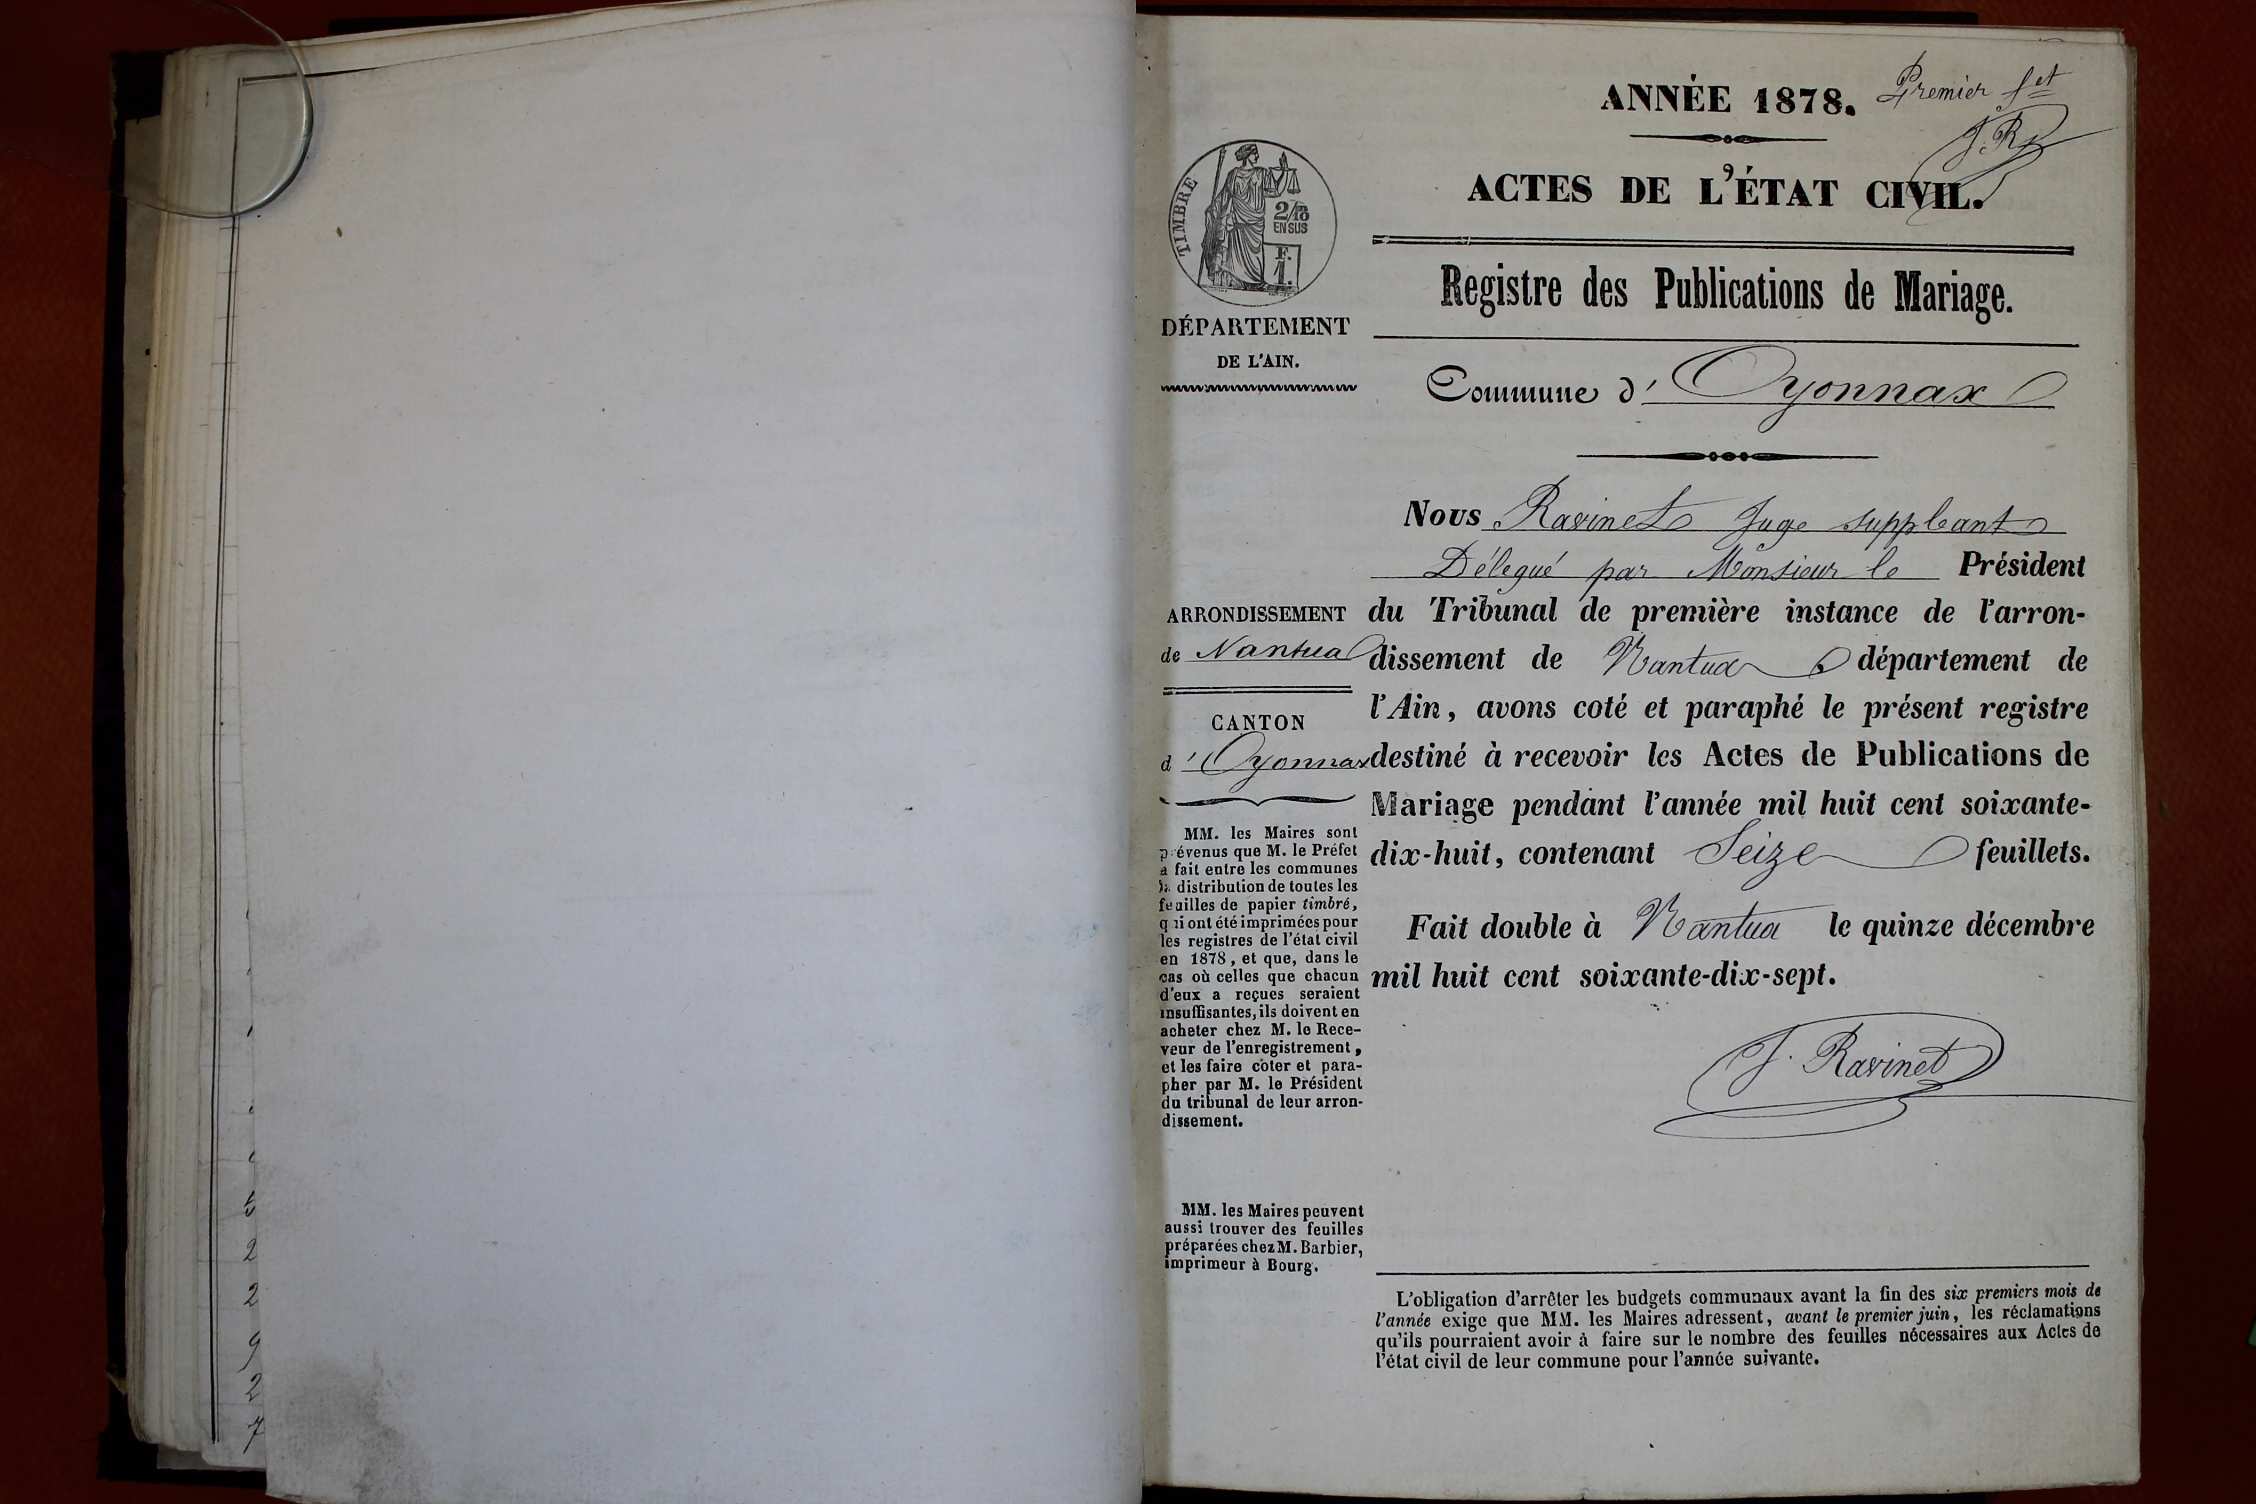 5
2
2
9
2
7
ANNÉE 1878.
Premier fet
J. R
ACTES DE L'ÉTAT CIVIL.
TIMBRE
2/10
EN SUS
F.
1.
Registre des Publications de Mariage.
DÉPARTEMENT
DE L'AIN.
Commune d' Oyonnax
Nous Ravinet Juge suppleant
Délegué par Monsieur le Président
du Tribunal de première instance de l'arron-
dissement de Nantua département de
l'Ain, avons coté et paraphé le présent registre
destiné à recevoir les Actes de Publications de
Mariage pendant l'année mil huit cent soixante-
dix-huit, contenant Seize feuillets.
Fait double à Nantua le quinze décembre
mil huit cent soixante-dix-sept.
J. Ravinet
ARRONDISSEMENT
de Nantua
CANTON
d' Oyonnax
MM. les Maires sont
prévenus que M. le Préfet
a fait entre les communes
la distribution de toutes les
feuilles de papier timbré,
qui ont été imprimées pour
les registres de l'état civil
en 1878, et que, dans le
cas où celles que chacun
d'eux a reçues seraient
insuffisantes, ils doivent en
acheter chez M. le Rece-
veur de l'enregistrement,
et les faire coter et para-
pher par M. le Président
du tribunal de leur arron-
dissement.
MM. les Maires peuvent
aussi trouver des feuilles
préparées chez M. Barbier,
imprimeur à Bourg.
L'obligation d'arrêter les budgets communaux avant la fin des six premiers mois de
l'année exige que MM. les Maires adressent, avant le premier juin, les réclamations
qu'ils pourraient avoir à faire sur le nombre des feuilles nécessaires aux Actes de
l'état civil de leur commune pour l'année suivante.